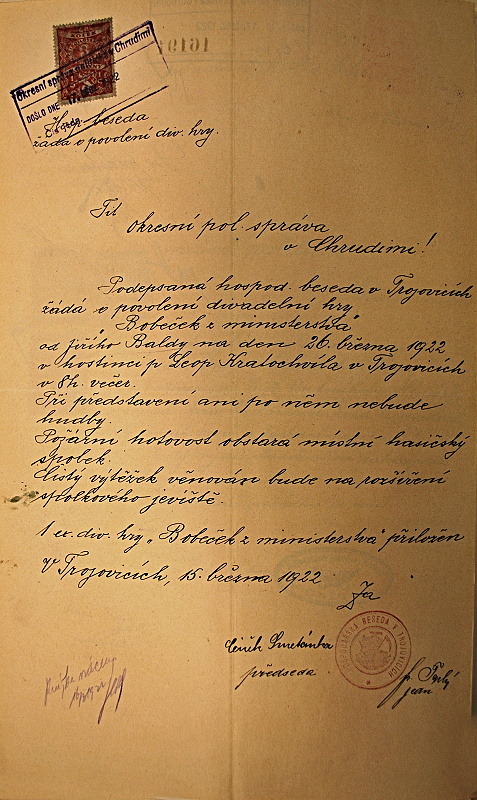 Okresní správa v Chrudimi
DOŠLO DNE
Hosp. beseda
žádá o povolení div. hry.
Tit
okresní pol. správa
v Chrudimi!
Podepsaná hospod. beseda v Trojovicích
žádá o povolení divadelní hry
"Bobeček z ministerstva"
od Jiřího Baldy na den 26. března 1922
v hostinci p Leop Kratochvíla v Trojovicích
v 8h. večer.
Při představení ani po něm nebude
hudby.
Požární hotovost obstará místní hasičský
spolek.
Čistý výtěžek věnován bude na rozšíření
spolkového jeviště.
1 ex. div. hry „Bobeček z ministerstva" přiložen
V Trojovicích, 15. března 1922
Za
Smetánka
předseda
jedn
BESEDA V TROJOVICÍCH